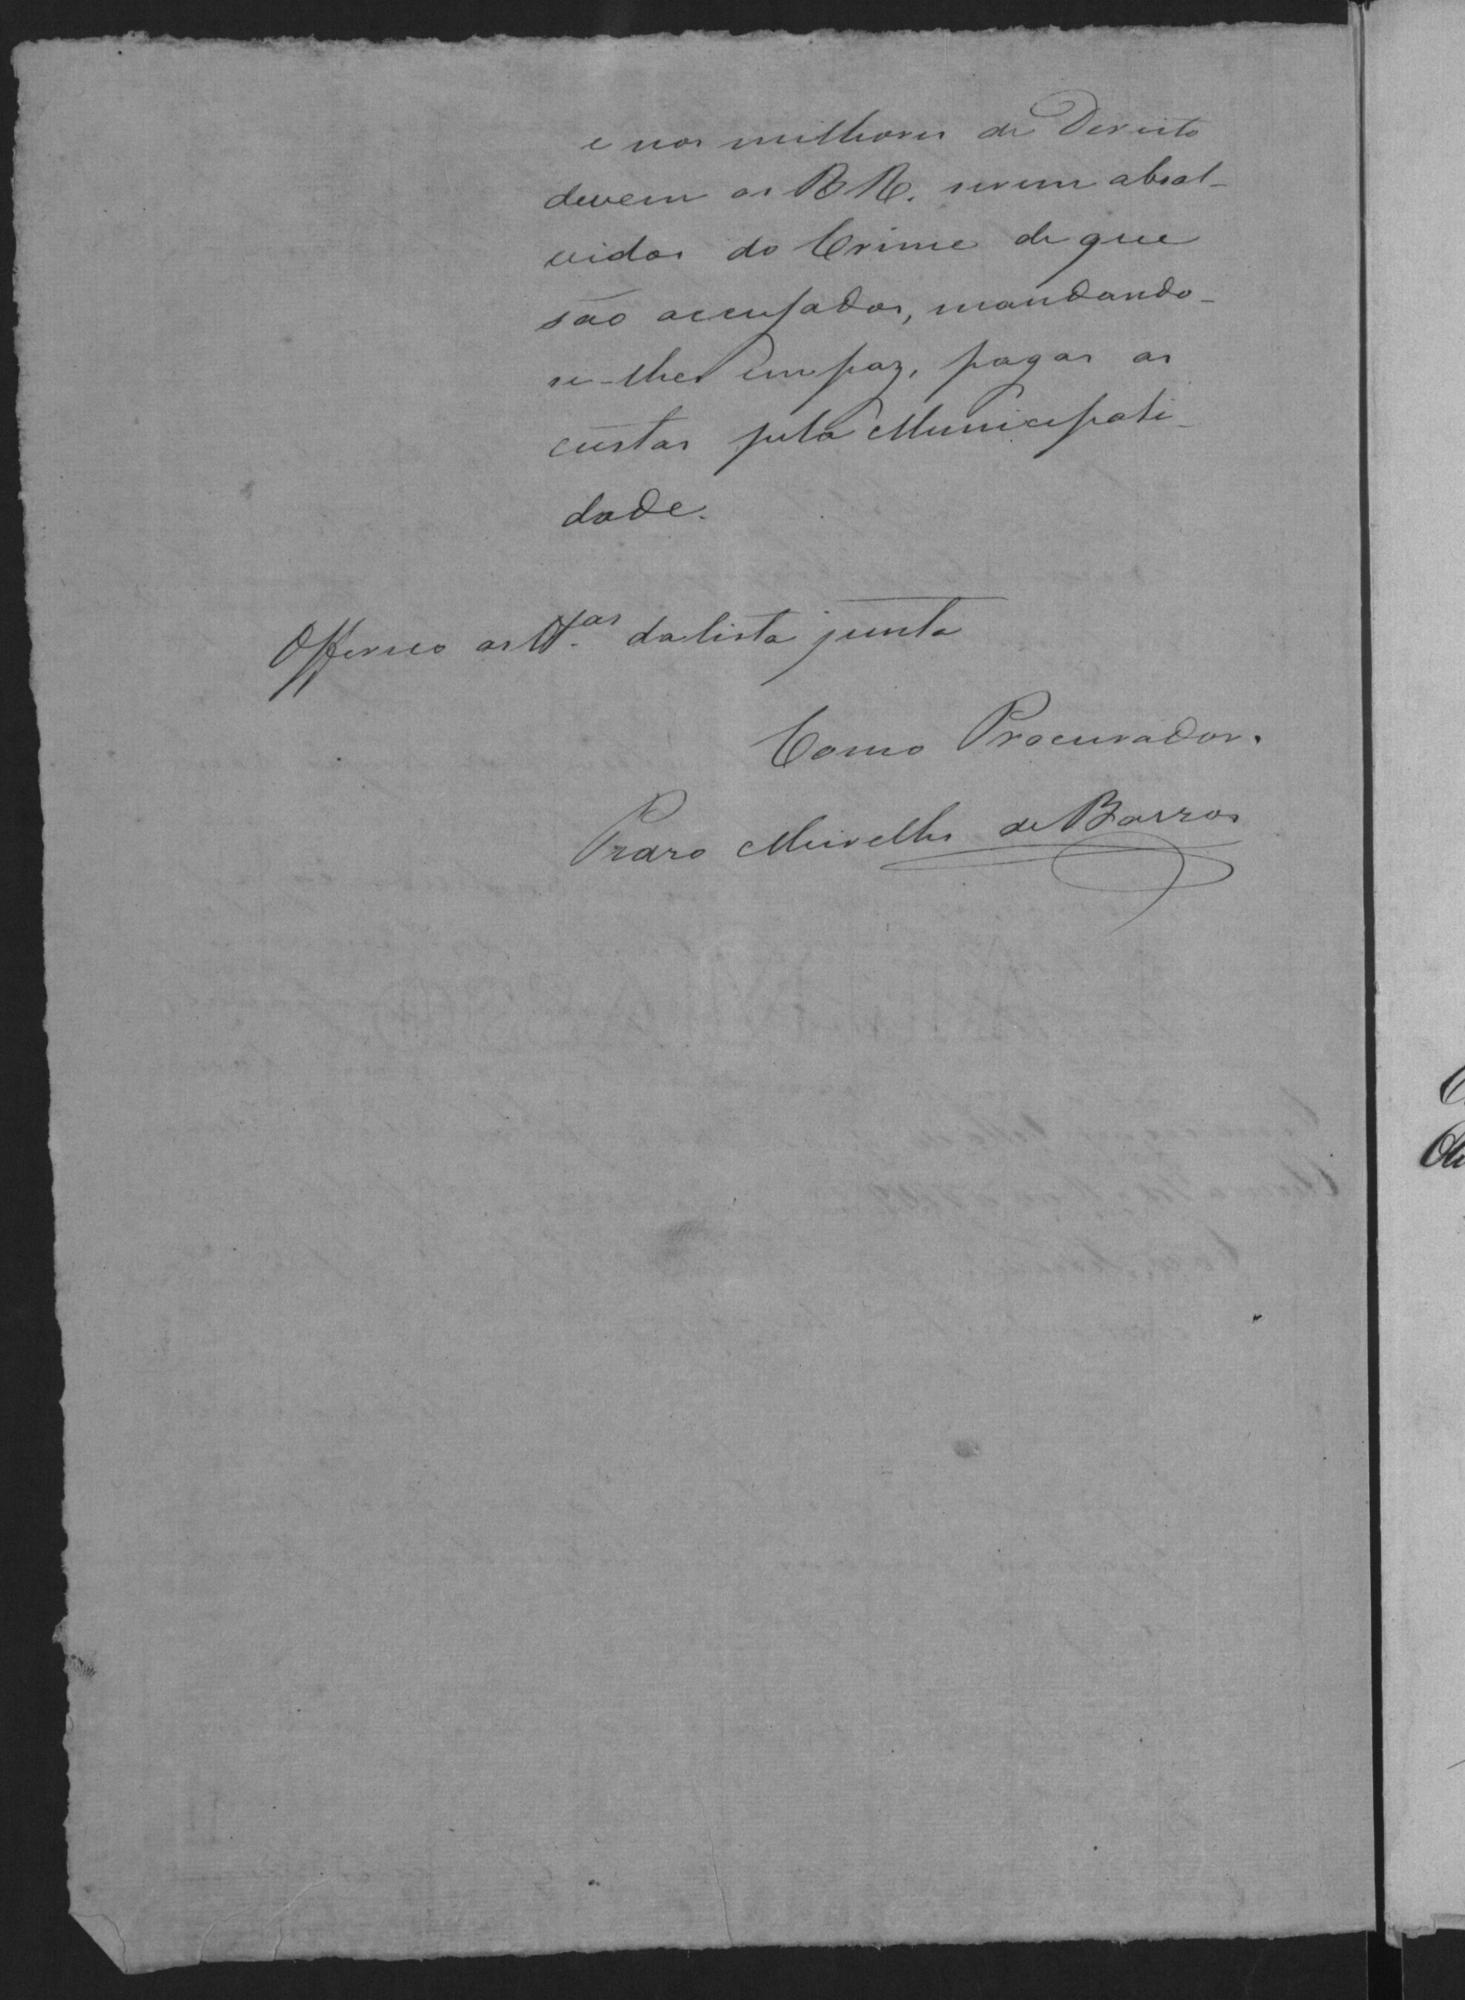 e nos milhores de Dereito
devem os RR. serem absol-
vidos do Crime de que
são accusados, mandando-
se-lhes em paz, pagas as
custas pela Municipali-
dade.
Offereço as tt.as da lista junta
Como Procurador.
Pedro Meirelles de Barros